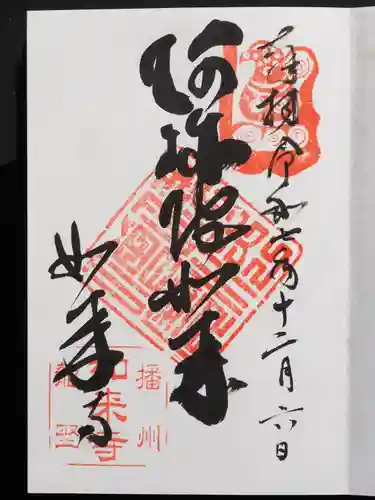 奉拝 令和六年十二月六日
阿弥陀如来
如来寺
播州
如来寺